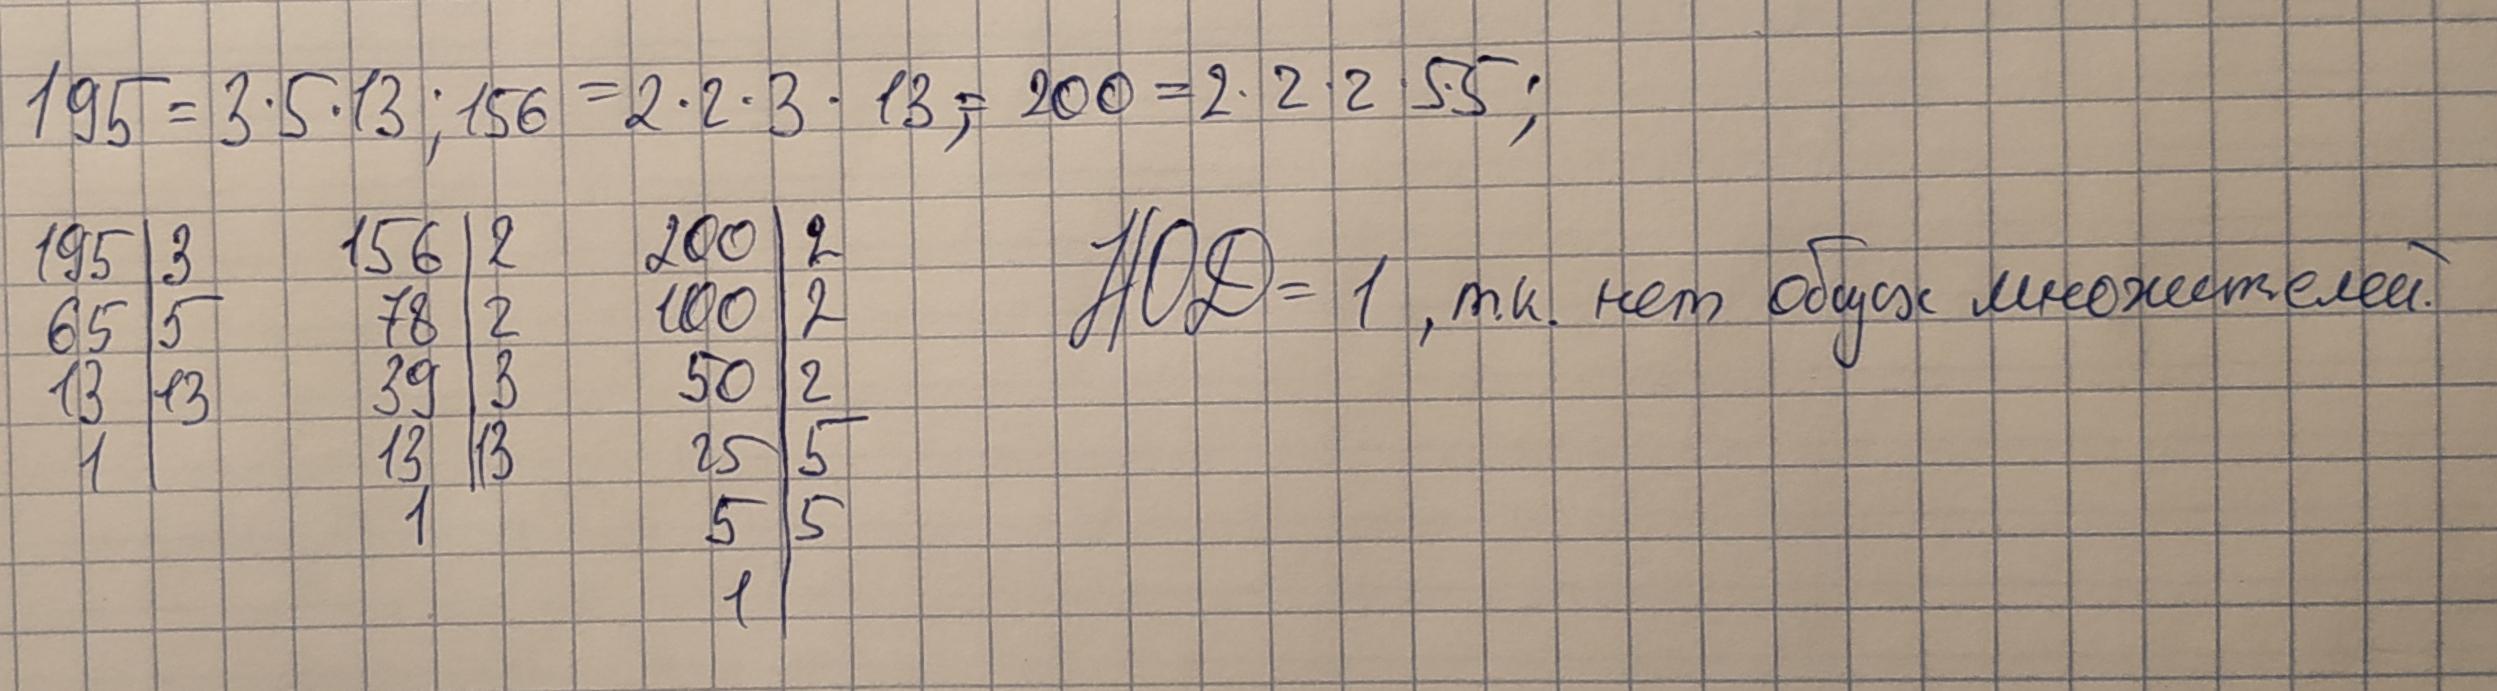 195 = 3·5·13; 156 = 2·2·3·13; 200 = 2·2·2·5·5;
195|3 156|2 200|2 НОД = 1, т.к. нет общих множителей.
65|5 78|2 100|2
13|13 39|3 50|2
1| 13|13 25|5
1 5|5
1|